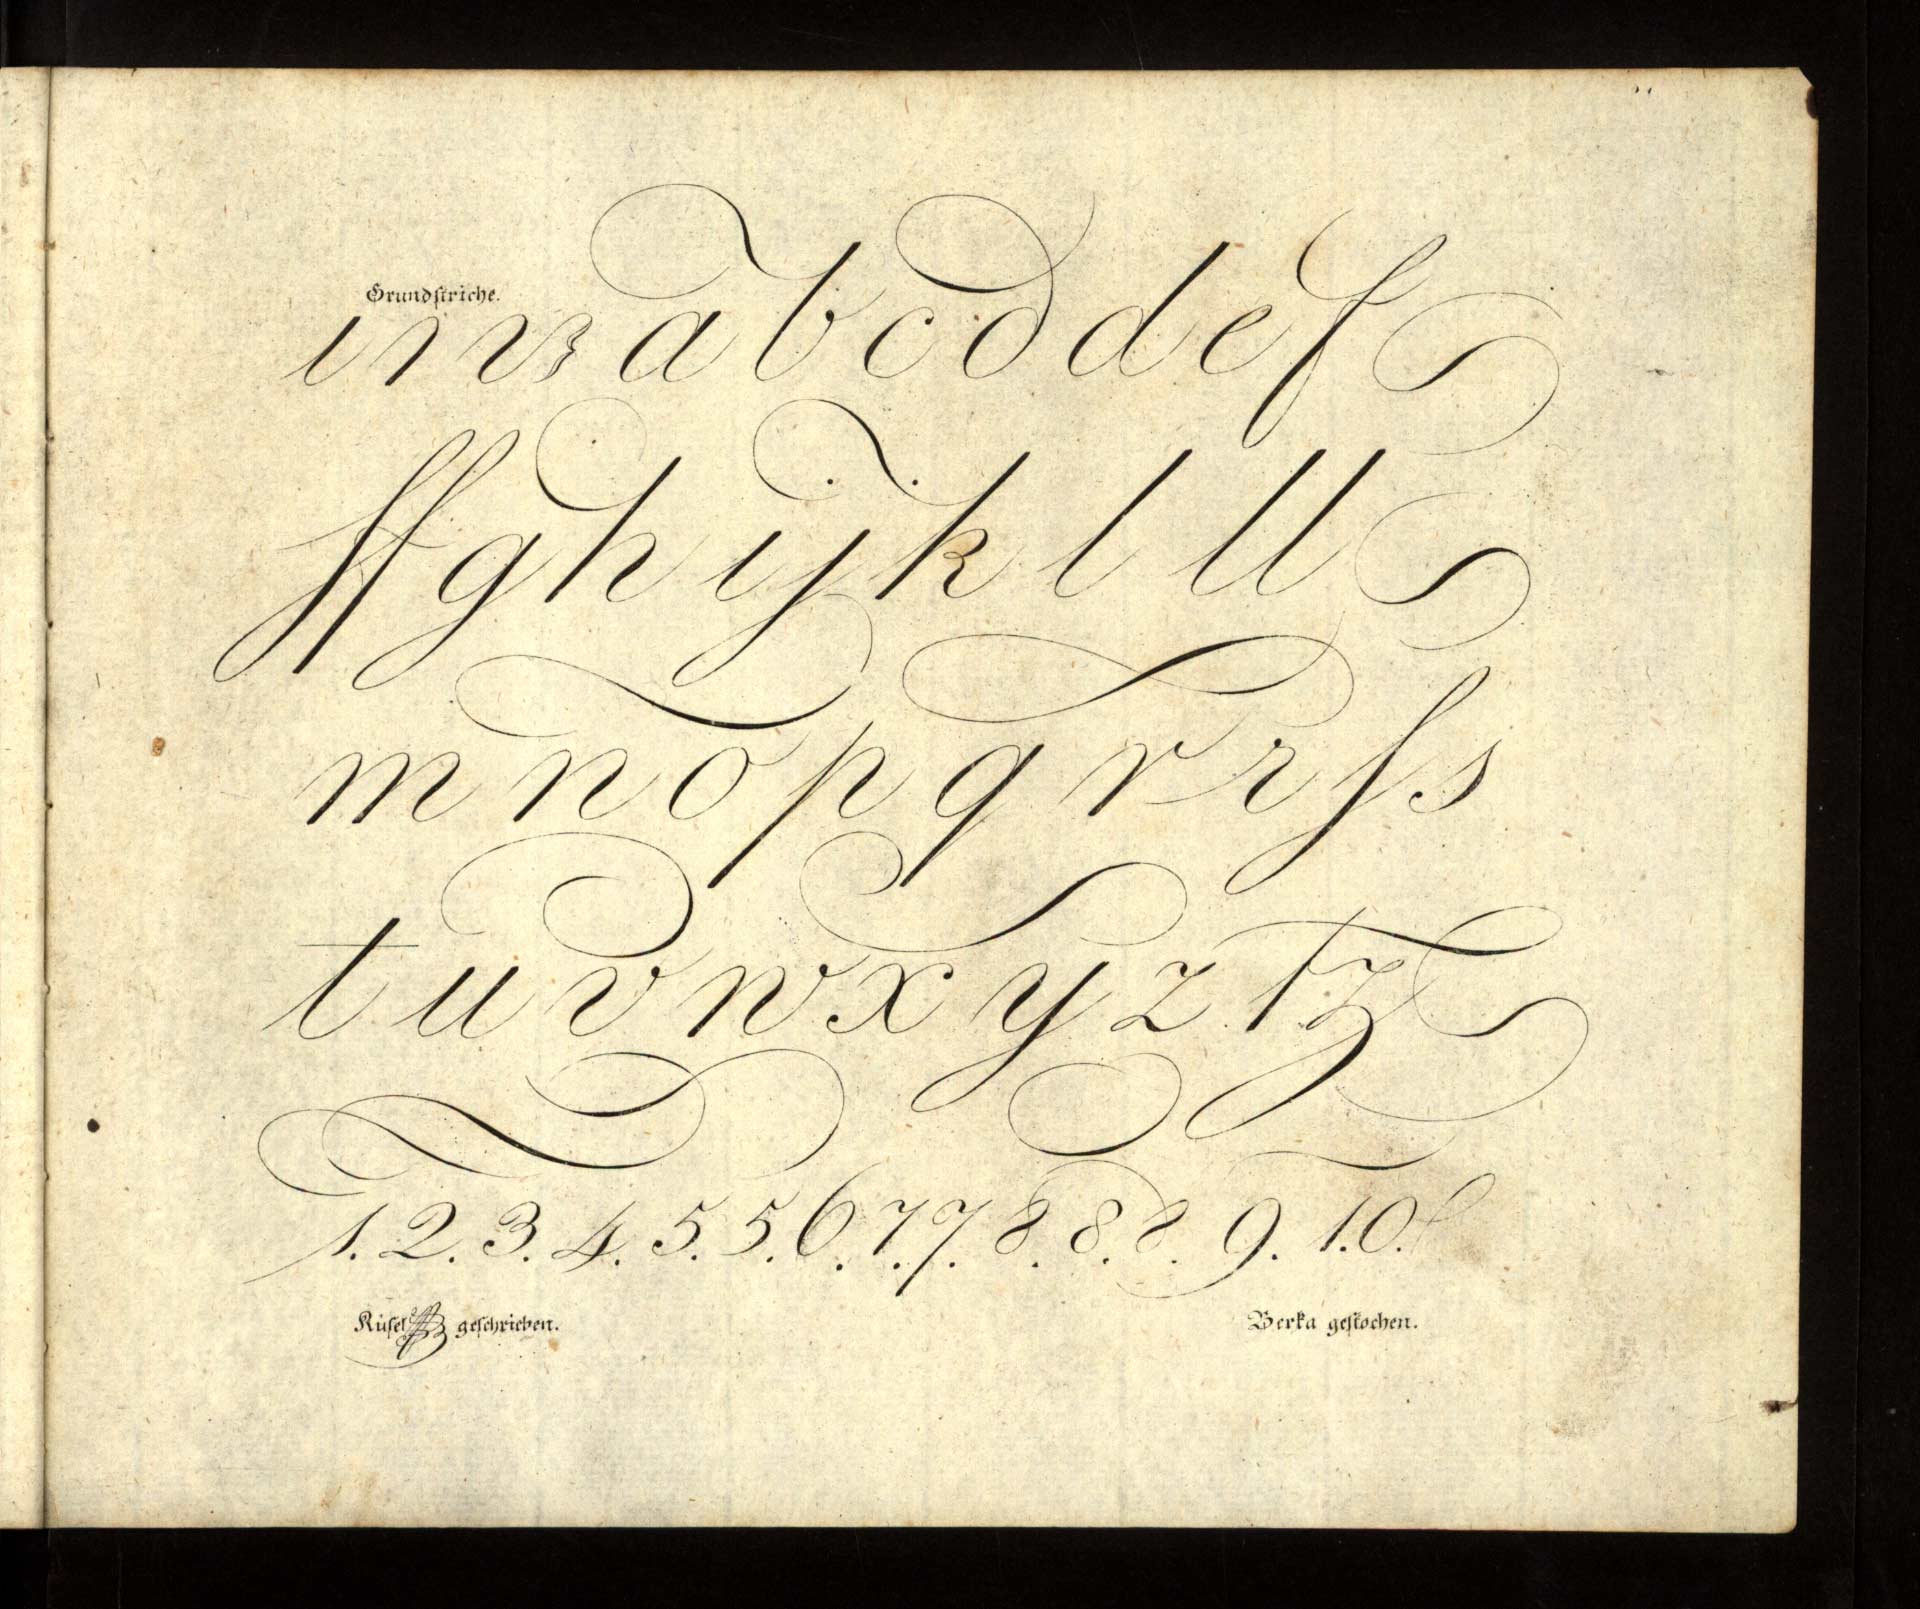 Grundſtriche.
ı r v a b c d d e f
ff g h i j k l ll
m n o p q r r ſ s
t u v w x y z tz
1. 2. 3. 4. 5. 5. 6. 7. 7. 8. 8. 8. 9. 1.0.
Küſel geſchrieben. Berka geſtochen.